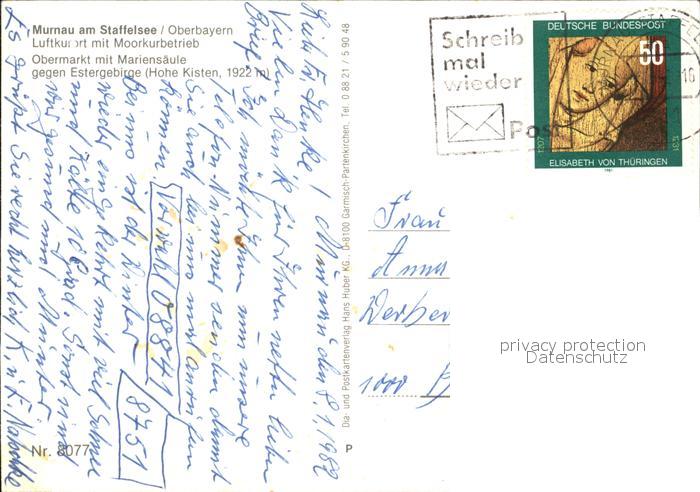 Murnau am Staffelsee / Oberbayern
Luftkurort mit Moorkurbetrieb
Obermarkt mit Mariensäule
gegen Estergebirge (Hohe Kisten, 1922 m)
Murnau den 8.1.1982
Vielen Dank für Ihren netten lieben
Brief. Ich möchte Ihnen nun unsere
Telefon-Nummer senden damit
Sie auch bei uns mal anrufen
können Vorwahl 08841/
8751
Bei uns ist der Winter
wieder eingekehrt mit viel Schnee
und Kälte 10 Grad. Sonst sind
wir gesund und Munter.
Es grüßt Sie recht herzlich K. u. E.
Nr. 8077
Dia- und Postkartenverlag Hans Huber KG., D-8100 Garmisch-Partenkirchen, Tel. 0 88 21 / 5 90 48
P
Schreib
mal
wieder
Post
DEUTSCHE BUNDESPOST
50
1207
1231
ELISABETH VON THÜRINGEN
1981
Frau
Anna
1000 B
privacy protection
Datenschutz